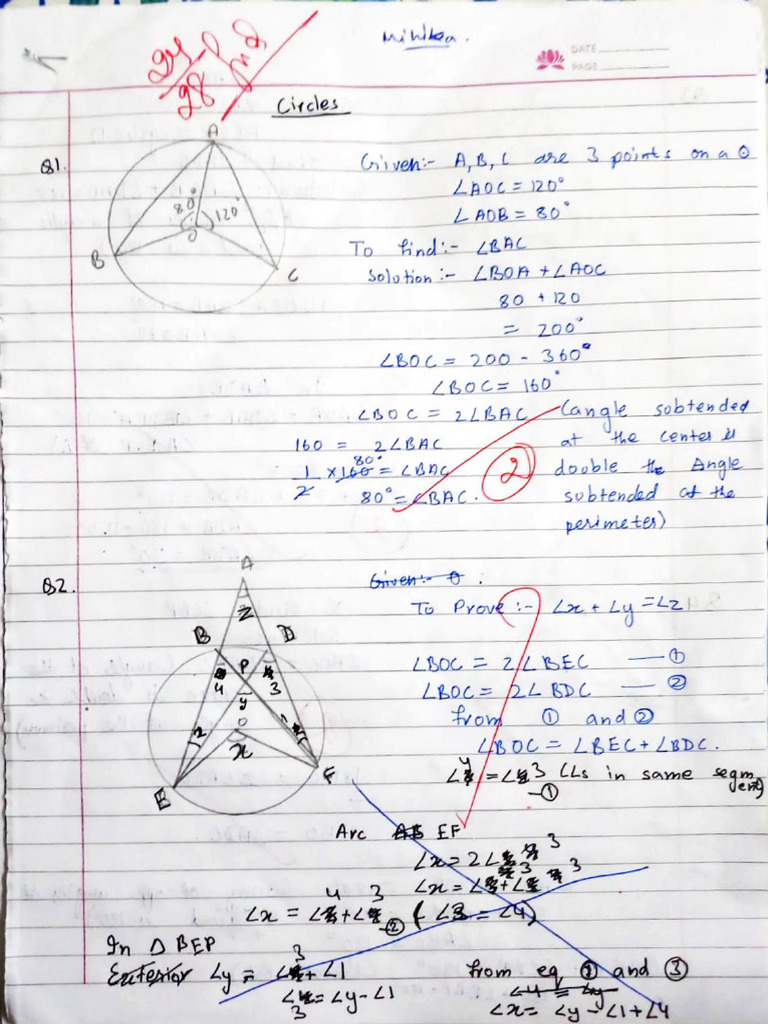 Mihika.
DATE
PAGE
24
28
Circles
Q1.
A
80° 120°
O
B
C
Given:- A, B, C are 3 points on a ⊙
∠AOC = 120°
∠AOB = 80°
To find:- ∠BAC
Solution:- ∠BOA + ∠AOC
80 + 120
= 200°
∠BOC = 200 - 360°
∠BOC = 160°
∠BOC = 2∠BAC (angle subtended
at the center is
double the Angle
subtended at the
perimeter)
160 = 2∠BAC
80°
1/2 × 160 = ∠BAC
80° = ∠BAC.
2
Q2.
A
Z
B
D
P
4
3
y
2
1
O
x
E
F
Given:-
To Prove:- ∠x + ∠y = ∠z
∠BOC = 2∠BEC — ①
∠BOC = 2∠BDC — ②
from ① and ②
∠BOC = ∠BEC + ∠BDC.
∠4 = ∠3 (∠s in same segment)
—①
Arc AB EF
∠x = 2∠3
∠x = ∠3 + ∠3
∠x = ∠4 + ∠3 —② (∠3 = ∠4)
In △ BEP
Exterior ∠y = ∠3 + ∠1
∠3 = ∠y - ∠1
from eq ② and ③
∠4 = ∠y
∠x = ∠y - ∠1 + ∠4